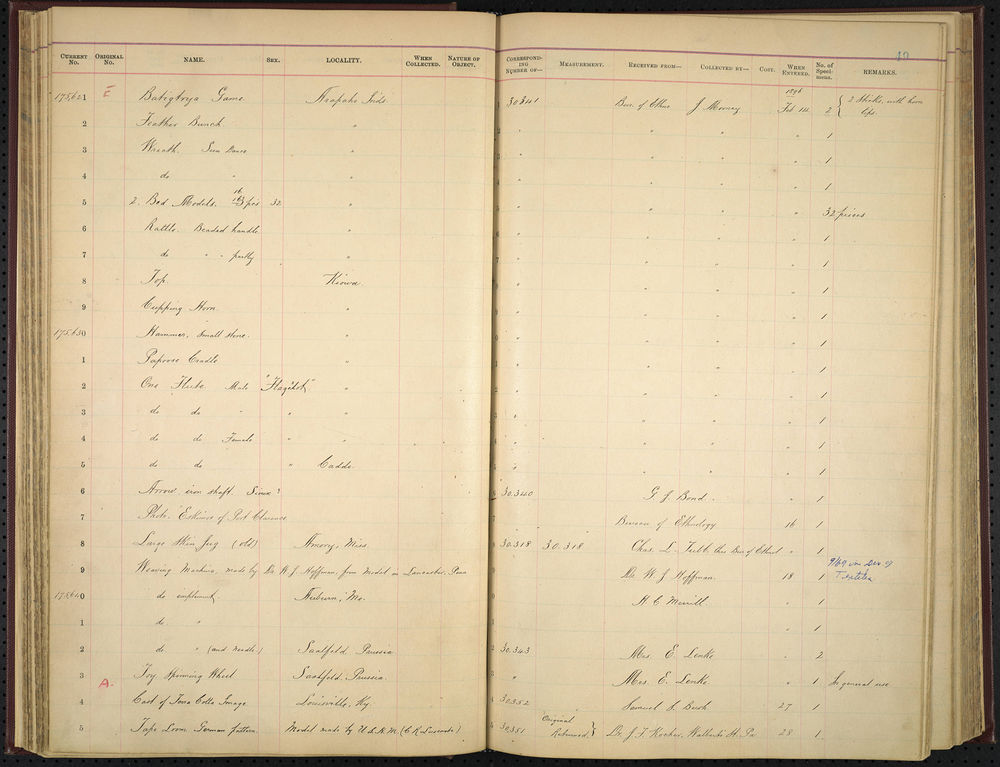 19
CURRENT No. ORIGINAL No. NAME. SEX. LOCALITY. WHEN COLLECTED. NATURE OF OBJECT. CORRESPONDING NUMBER OF— MEASUREMENT. RECEIVED FROM— COLLECTED BY— COST. WHEN ENTERED. No. of Specimens. REMARKS.
175621 E Game. Arapaho Inds. 30341 Bur. of Ethno J. Mooney 1896 Feb 14 2 { 2 Sticks, with horn tips.
2 Feather Bunch " " " " " 1
3 Wreath. Sun Dance " " " " " 1
4 do " " " " " " 1
5 2. Bed Models. 16 pcs 32 " " " " " 32 pieces
6 Rattle. Beaded handle " " " " " 1
7 do " " partly " " " " " 1
8 Top Kiowa. " " " " 1
9 Cupping Horn " " " " " 1
175630 Hammer, small stone. " " " " " 1
1 Papoose Cradle " " " " " 1
2 One Flute Male " " " " " " 1
3 do do " " " " " " " 1
4 do do Female " " " " " " 1
5 do do " Caddo. " " " " 1
6 Arrow iron shaft. Sioux? 30.340 G. J. Bond. " 1
7 Photo. Eskimos of Port Clarence Bureau of Ethnology 16 1
8 Large Skin Jug (old) Amory, Miss. 30.318 30.318 Chas. L. thro Bur. of Ethnol " 1
9 Weaving Machine, made by Dr W. J. Hoffman from Model in Lancaster, Penn Dr. W. J. Hoffman. 18 1 9/69 in Div. of Textiles
175640 do implement Auburn, Me. H. C. Merrill " 1
1 do " " 1
2 do " (and needle) Saalfeld Prussia 30.343 Mrs E. Lenke " 2
3 Toy Spinning Wheel Saalfeld, Prussia. " Mrs. E. Lenke " 1 In general use
A.
4 Cast of Terra Cotta Image Louisville, Ky. 30352 Samuel S. Bush 27 1
5 Tape Loom German pattern. Model made by U.S.N.M. 30351 Original Returned } Dr. J. F. Pa 28 1